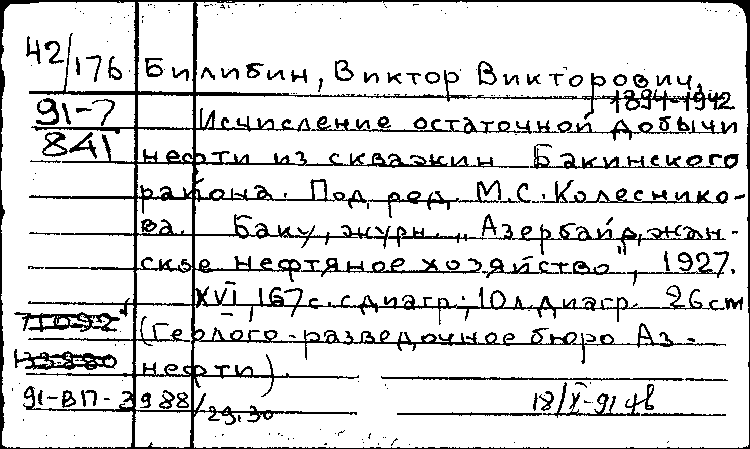 42/176 Билибин, Виктор Викторович,
1894-1942
91-7 Исчисление остаточной добычи
841 нефти из скважин Бакинского
района. Под ред. М.С. Колеснико-
ва. Баку, журн. „Азербайджан-
ское нефтяное хозяйство", 1927.
XVI, 167 с. с диагр.; 10 л. диагр. 26 см
71092 (Геолого-разведочное бюро Аз-
133880 нефти).
91-ВП-3988/29,30 18/X-91